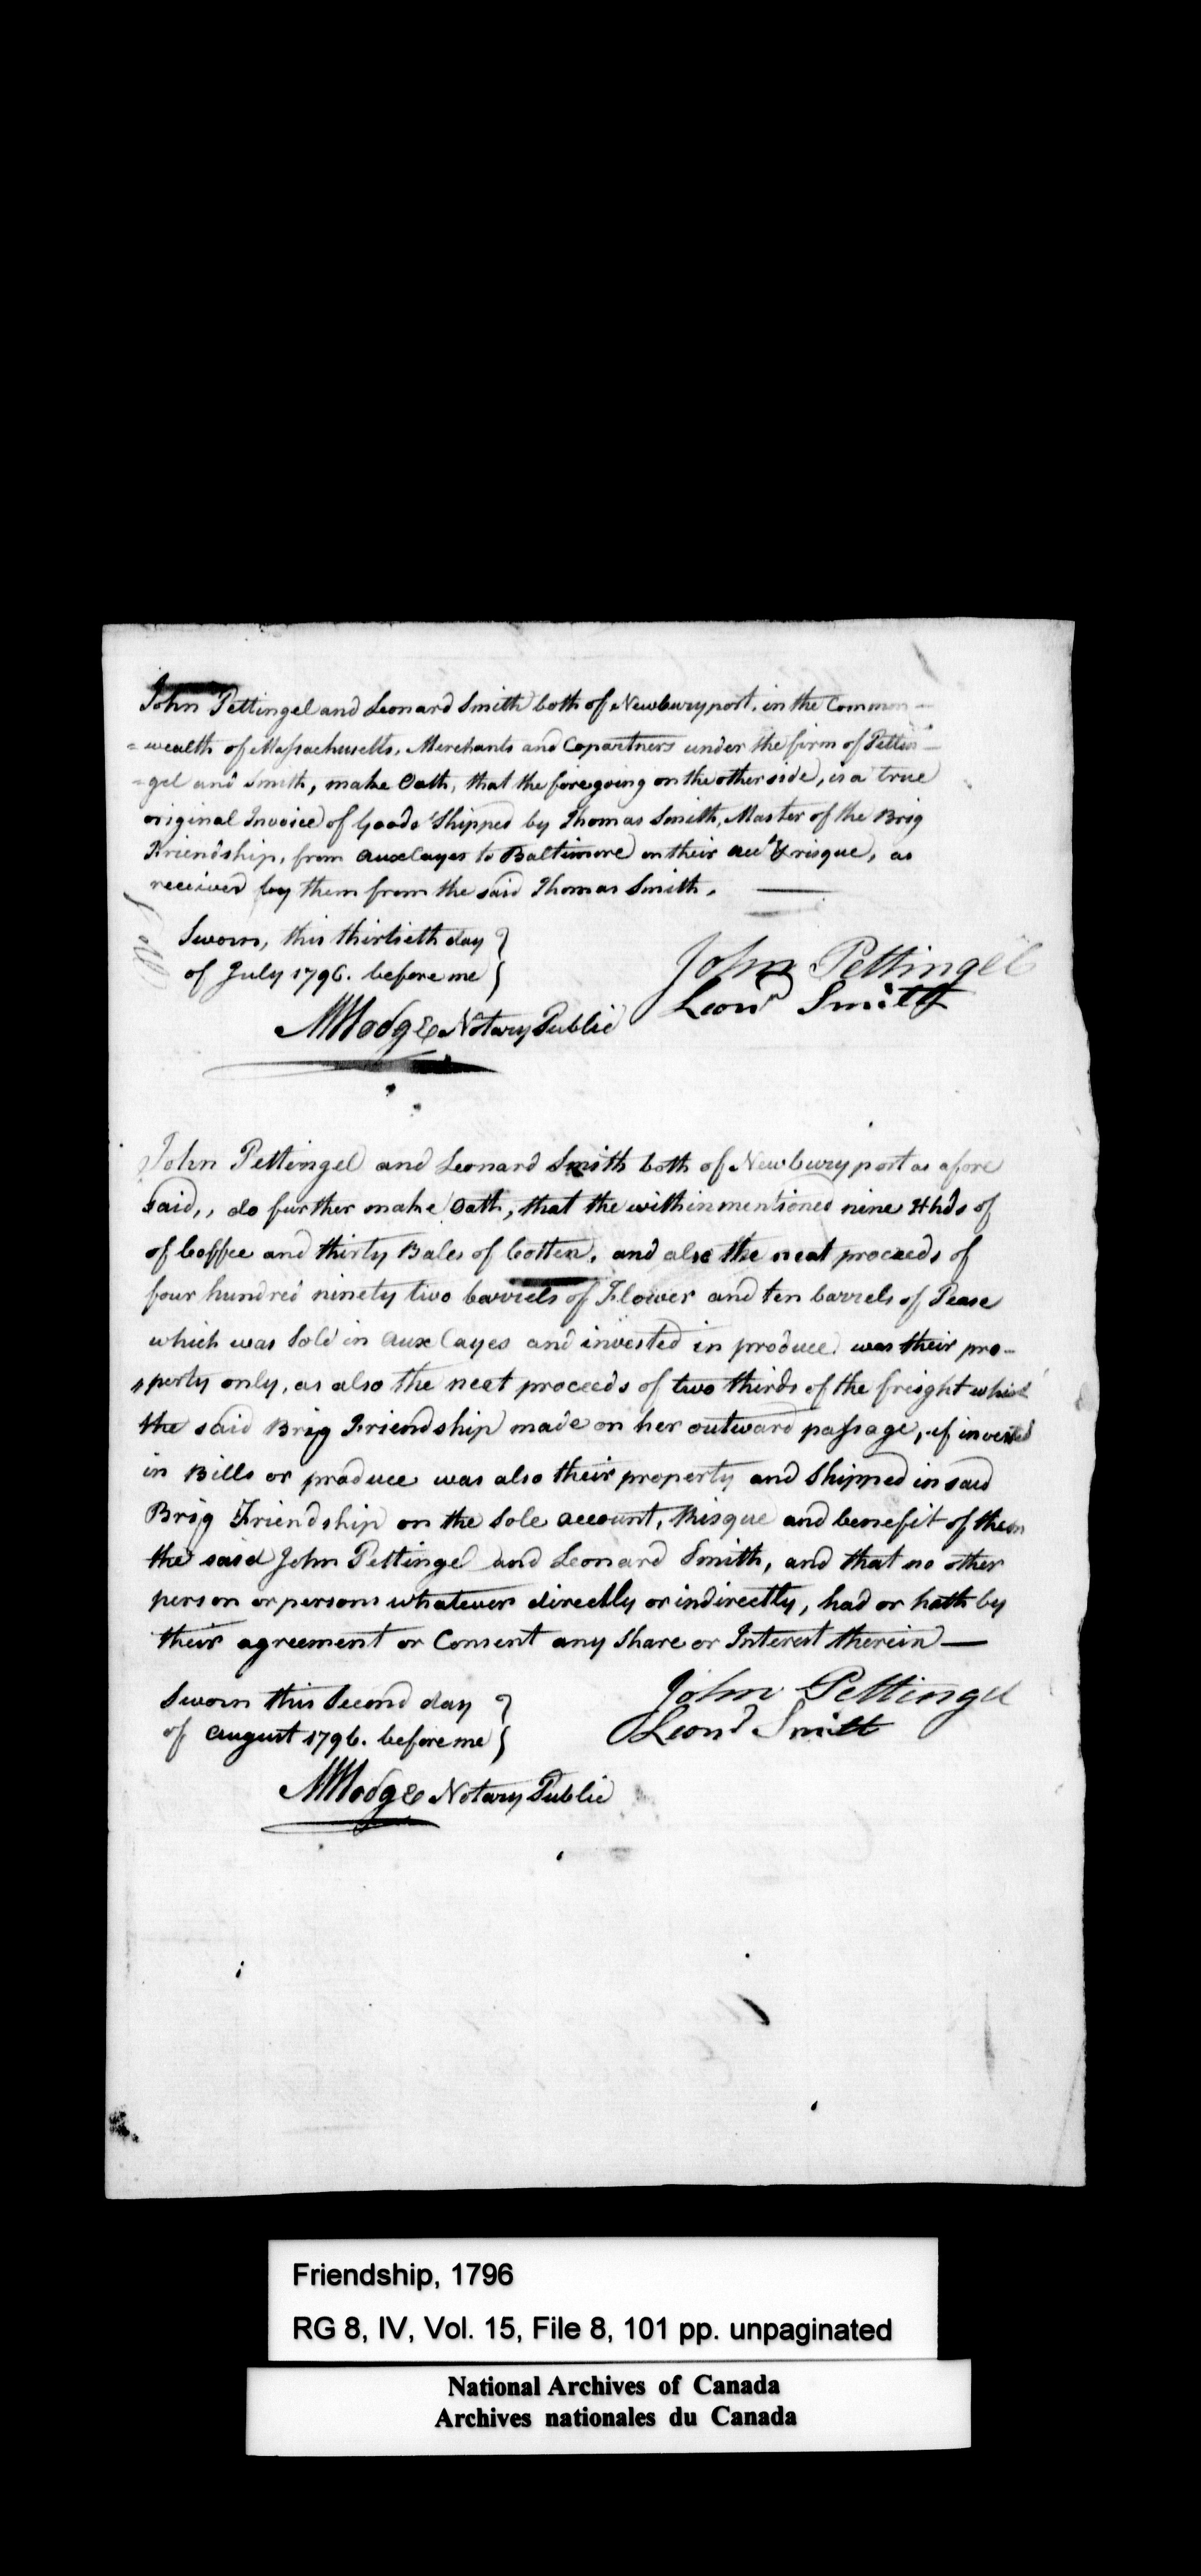 John Pettingel and Leonard Smith both of Newburyport, in the Common-
=wealth of Massachusetts, Merchants and Copartners under the firm of Pettin-
=gel and Smith, make Oath, that the foregoing on the other side, is a true
original Invoice of Goods Shipped by Thomas Smith, Master of the Brig
Friendship, from Aux Cayes to Baltimore on their acct & risque, as
received by them from the said Thomas Smith.
Sworn, this thirtieth day
of July 1796. before me
John Pettingel
Leond Smith
M Hodge Notary Public
John Pettingel and Leonard Smith both of Newburyport as afore
said,, do further make Oath, that the within mentioned nine Hhds of
of Coffee and thirty Bales of Cotten, and also the neat proceeds of
four hundred ninety two barriels of Flower and ten barriels of Pease
which was Sold in Aux Cayes and invested in produce was their pro-
=perty only, as also the neet proceeds of two thirds of the freight which
the said Brig Friendship made on her outward passage, if invested
in Bills or produce was also their property and Shipped in said
Brig Friendship on the Sole account, Risque and benefit of them
the said John Pettingel and Leonard Smith, and that no other
person or persons whatever directly or indirectly, had or hath by
their agreement or Consent any Share or Interest therein
Sworn this Second day
of August 1796. before me
John Pettingel
Leond Smith
M Hodge Notary Public
Friendship, 1796
RG 8, IV, Vol. 15, File 8, 101 pp. unpaginated
National Archives of Canada
Archives nationales du Canada